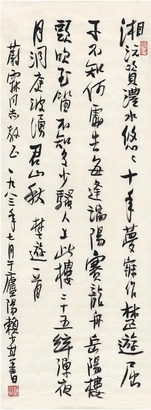 湘沅資澧水悠悠十年夢寐作楚遊屈
子不知何處去每逢端陽賽龍舟岳陽樓
頭吹玉笛多少騷人上此樓二十五絃彈夜
月洞庭波湧君山秋 楚遊一首
蔚霖同志教正 一九八三年七月于廬陽賴少其書